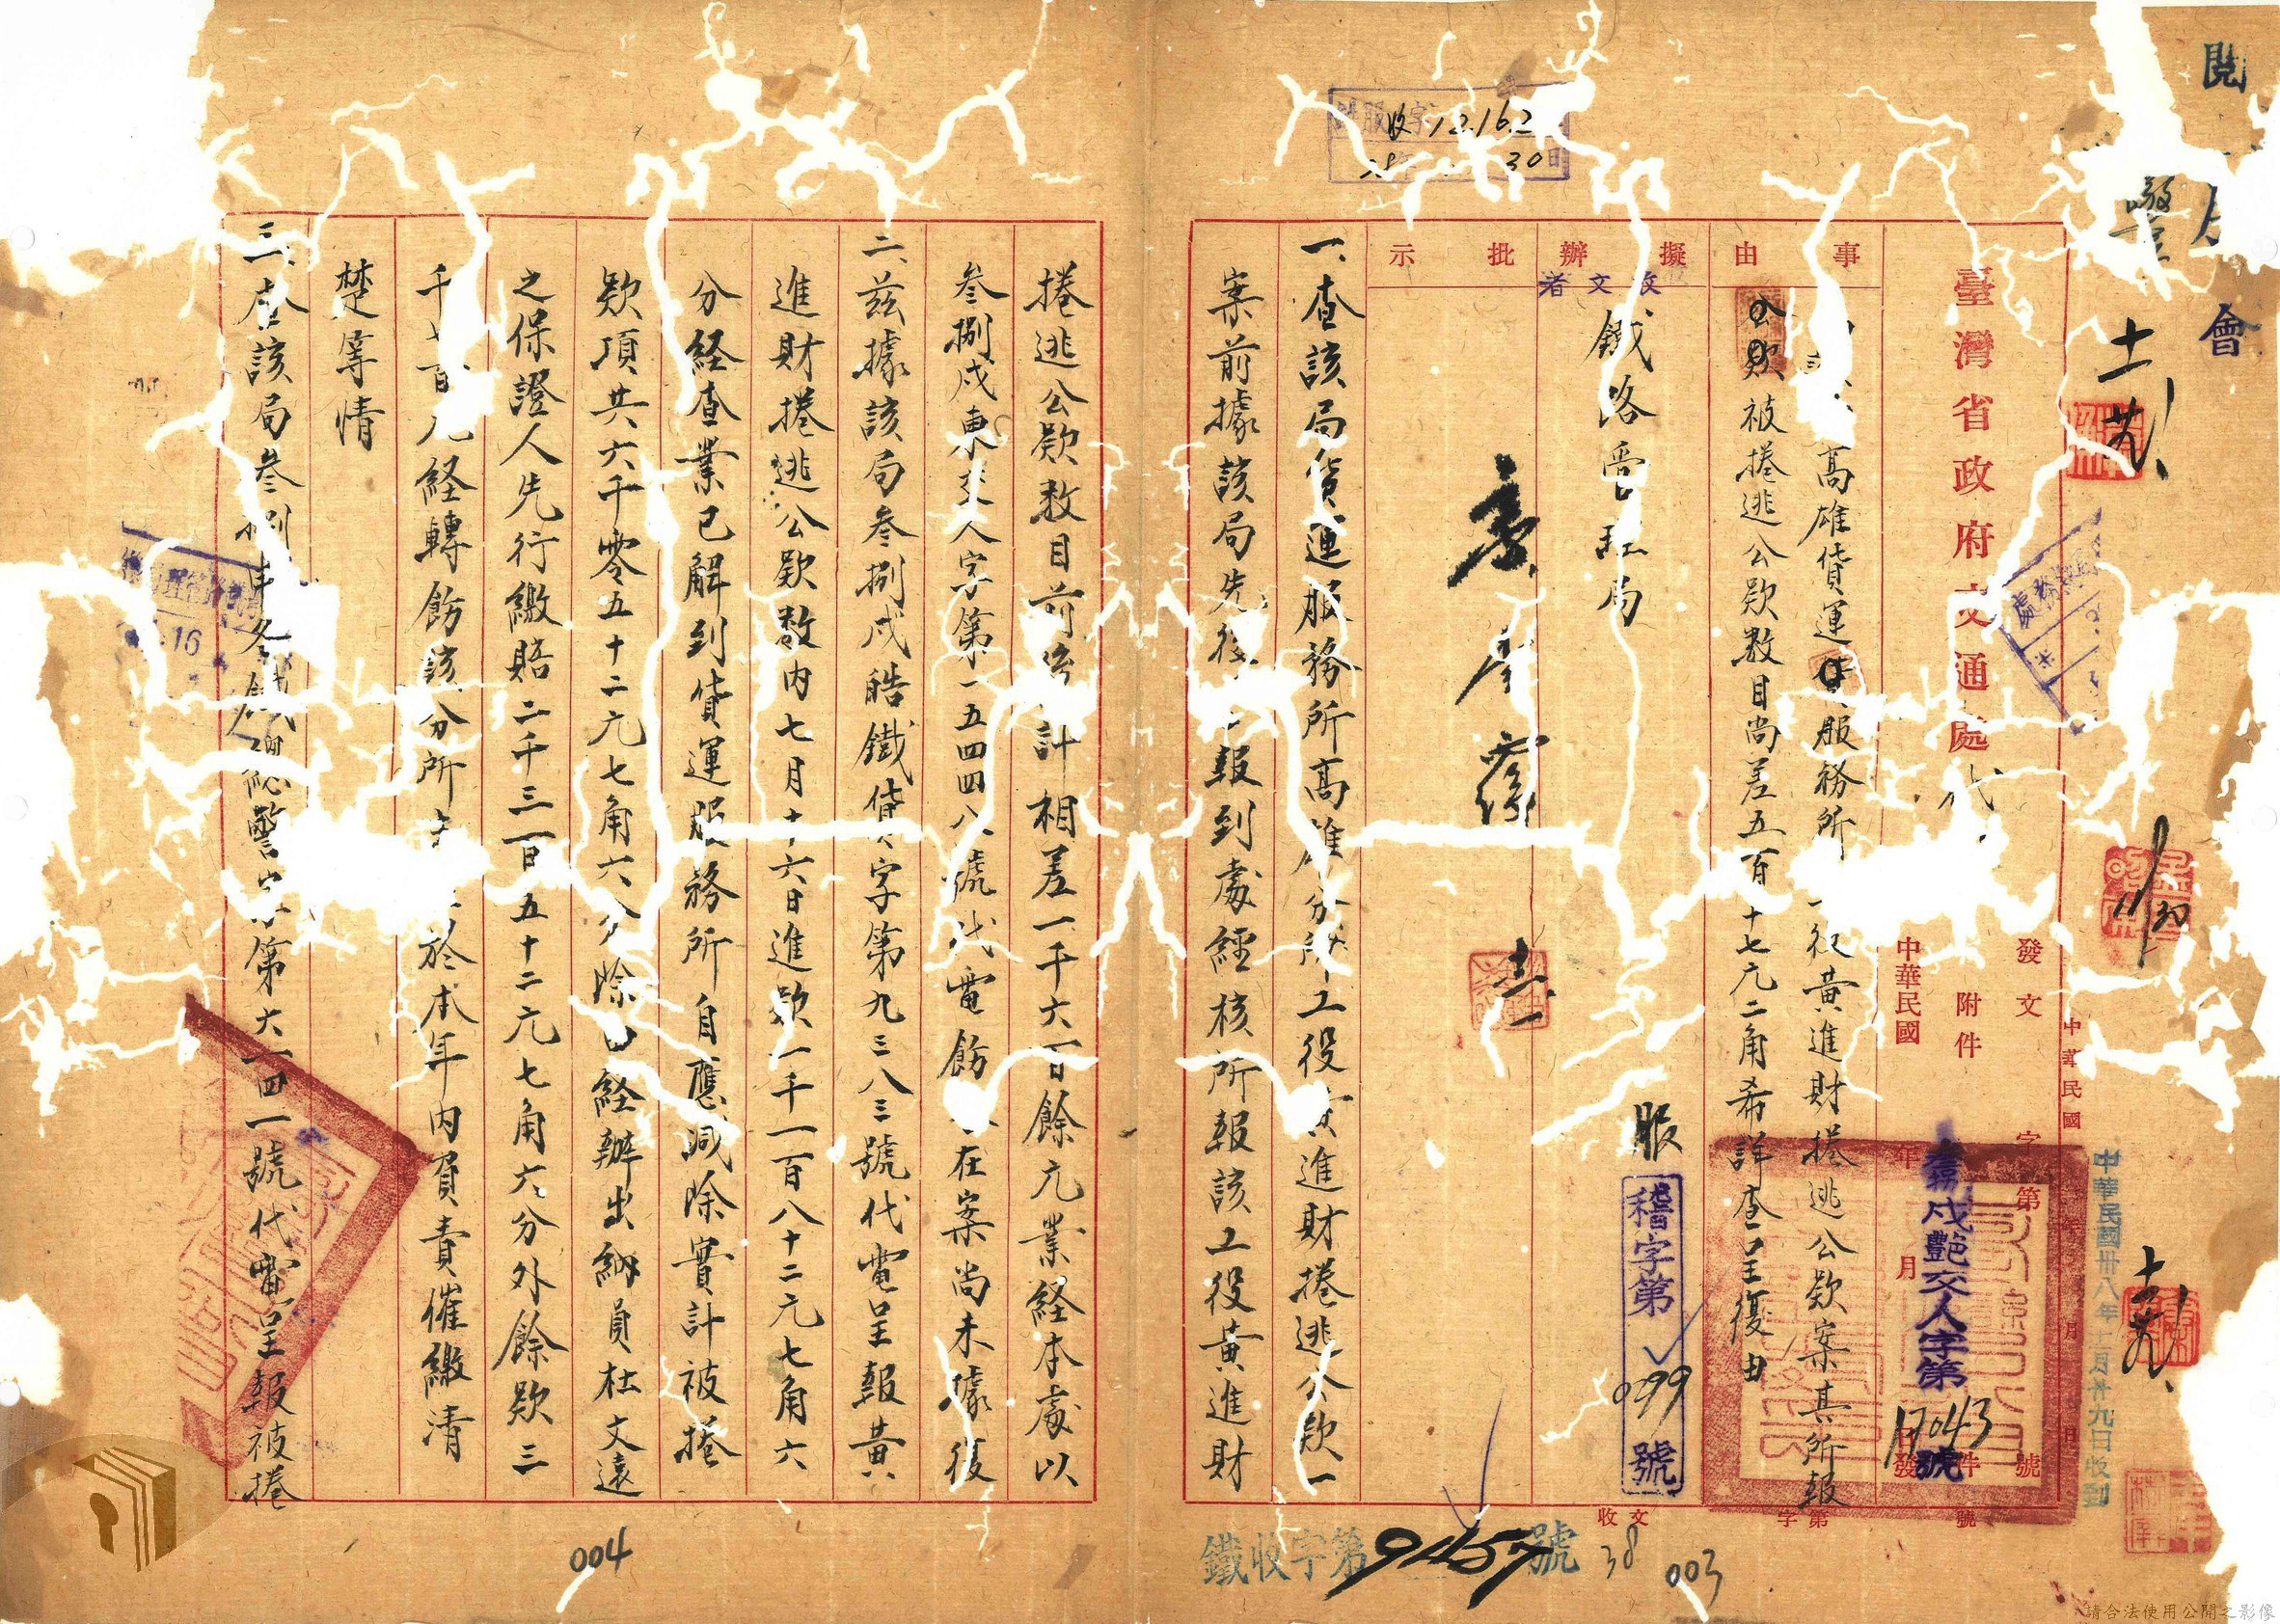 閱
會
臺灣省政府交通處代
發文 字第 號
附件
中華民國 年 月 日發
中華民國卅八年十一月廿九日收到
戌艷交人字第17043號
事由
高雄貨運服務所 役黃進財捲逃公款案其所報
公款被捲逃公款数目尚差五百 十七元二角希詳查呈復由
擬辦
批示
收文者
鐵路管理局
服
稽字第099號
一、查該局貨運服務所高雄分所工役黃進財捲逃公款一
案前據該局先後 報到處經核所報該工役黃進財
收文 字第 號
鐵收字第9457號
38
003
收12162
30
捲逃公款数目前後計相差一千六百餘元業経本處以
叁捌戌東交人字第一五四四八號代電飭 在案尚未據復
二、茲據該局叁捌戌皓鐵貨貨字第九三八三號代電呈報黃
進財捲逃公款数內七月十六日進款一千一百八十二元七角六
分経查業已解到貨運服務所自應減除實計被捲
款項共六千零五十二元七角六分除已経辦出納員杜文遠
之保證人先行繳賠二千三百五十二元七角六分外餘款三
千七百元経轉飭該分所 於本年內負責催繳清
楚等情
三、查該局叁捌申冬鐵 總警字第六一四一號代電呈報被捲
16
004
請合法使用公開之影像